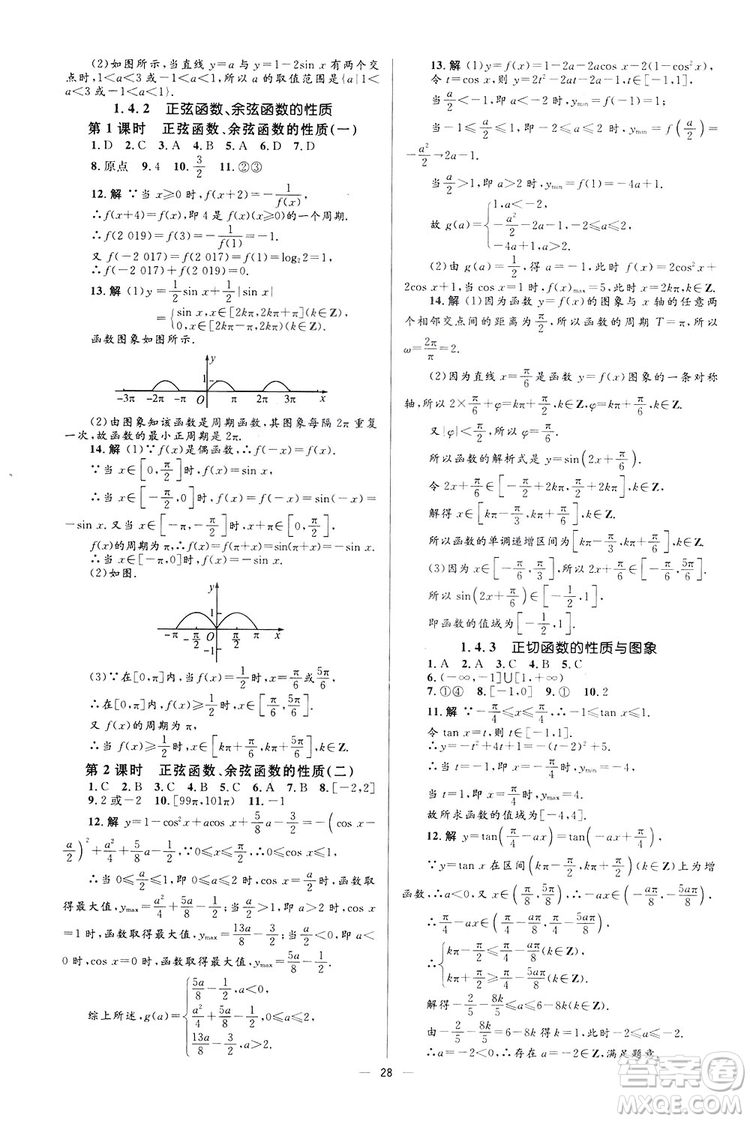 (2)如图所示,当直线 y=a 与 y=1-2sin x 有两个交
点时,1<a<3 或-1<a<1,所以 a 的取值范围是{a|1<
a<3 或-1<a<1}.
1.4.2 正弦函数、余弦函数的性质
第 1 课时 正弦函数、余弦函数的性质(一)
1.D 2.C 3.A 4.B 5.A 6.D 7.D
8.原点 9.4 10.3/2 11.②③
12.解 ∵当 x≥0 时,f(x+2)=-1/f(x)
∴f(x+4)=f(x),即 4 是 f(x)的一个周期.
∴f(2 019)=f(3)=-1/f(1)=-1.
又 f(-2 017)=f(2 017)=f(1)=log₂2=1,
∴f(-2 017)+f(2 019)=0.
13.解 (1)y=1/2 sin x+1/2|sin x|
={sin x,x∈[2kπ,2kπ+π](k∈Z),
0,x∈[2kπ-π,2kπ)(k∈Z).
函数图象如图所示.
y
1
-3π -2π -π O π 2π 3π x
(2)由图象知该函数是周期函数,其图象每隔 2π 重复
一次,故函数的最小正周期是 2π.
14.解 (1)∵f(x)是偶函数,∴f(-x)=f(x).
∵当 x∈[0,π/2]时,f(x)=sin x,
∴当 x∈[-π/2,0]时,f(x)=f(-x)=sin(-x)=
-sin x.又当 x∈[-π,-π/2]时,x+π∈[0,π/2],
f(x)的周期为 π,∴f(x)=f(x+π)=sin(π+x)=
-sin x.∴当 x∈[-π,0]时,f(x)=-sin x.
(2)如图.
y
1
-π -π/2 O π/2 π x
-1
(3)∵在[0,π]内,当 f(x)=1/2时,x=π/6或5π/6,
∴在[0,π]内,f(x)≥1/2时,x∈[π/6,5π/6].
又 f(x)的周期为 π,
∴当 f(x)≥1/2时,x∈[kπ+π/6,kπ+5π/6],k∈Z.
第 2 课时 正弦函数、余弦函数的性质(二)
1.C 2.B 3.D 4.C 5.A 6.B 7.C 8.[-2,2]
9.2或-2 10.[99π,101π] 11.-1
12.解 y=1-cos²x+acos x+5/8 a-3/2=-(cos x-
a/2)²+a²/4+5a/8-1/2.∵0≤x≤π/2,∴0≤cos x≤1.
∴当 0≤a/2≤1,即 0≤a≤2 时,cos x=a/2时,函数取
得最大值,y_max=a²/4+5a/8-1/2;当a/2>1,即 a>2,cos x=
1 时,函数取得最大值,y_max=13a/8-3/2;当a/2<0,即 a<
0 时,cos x=0 时,函数取得最大值,y_max=5a/8-1/2.
综上所述,g(a)={5a/8-1/2,a<0,
a²/4+5a/8-1/2,0≤a≤2,
13a/8-3/2,a>2.
13.解 (1)y=f(x)=1-2a-2acos x-2(1-cos²x).
令 t=cos x,则 t∈[-1,1].
当a/2<-1,即 a<-2 时,y_min=f(-1)=1;
当-1≤a/2≤1,即-2≤a≤2 时,y_min=f(a/2)=
-a²/2-2a-1;
当a/2>1,即 a>2 时,y_min=f(1)=1-4a.
故 g(a)={1,a<-2,
-a²/2-2a-1,-2≤a≤2,
-4a+1,a>2.
(2)由 g(a)=1/2,得 a=-1,此时 f(x)=2cos²x+
2cos x+1,当 cos x=1 时,f(x)_max=5,此时 x=2kπ,k∈Z.
14.解 (1)因为函数 y=f(x)的图象与 x 轴的任意两
个相邻交点间的距离为π/2,所以函数的周期 T=π,所以
ω=2π/π=2.
(2)因为直线 x=π/6是函数 y=f(x)图象的一条对称
轴,所以 2×π/6+φ=kπ+π/2,k∈Z,φ=kπ+π/6,k∈Z.
又|φ|<π/2,所以φ=π/6.
所以函数的解析式为 y=sin(2x+π/6).
令 2x+π/6∈[-π/2+2kπ,π/2+2kπ],k∈Z,
解得 x∈[kπ-π/3,kπ+π/6],k∈Z.
所以函数的单调递增区间为[kπ-π/3,kπ+π/6],k∈Z.
(3)因为 x∈[0,π/2],所以 2x+π/6∈[π/6,7π/6].
所以 sin(2x+π/6)∈[-1/2,1],
即函数的值域为[-1/2,1].
1.4.3 正切函数的性质与图象
1.A 2.A 3.C 4.B 5.C
6.(-∞,-1]∪[1,+∞)
7.①④ 8.[-1,0] 9.① 10.2
11.解 ∵-π/4≤x≤π/4,∴-1≤tan x≤1.
令 tan x=t,则 t∈[-1,1].
∴y=-t²+4t+1=-(t-2)²+5.
∴当 t=-1,即 x=-π/4时,y_min=-4,
当 t=1,即 x=π/4时,y_max=4.
故所求函数的值域为[-4,4].
12.解 y=tan(π/4-ax)=tan(-ax+π/4),
∵y=tan x 在区间(kπ-π/2,kπ+π/2)(k∈Z)上为增
函数,∴a<0,又 x∈(π/8,5π/8),∴-ax∈(-aπ/8,-5aπ/8),
∴π/4-ax∈(π/4-aπ/8,π/4-5aπ/8),
∴{kπ-π/2≤π/4-aπ/8(k∈Z),
kπ+π/2≥π/4-5aπ/8(k∈Z).
解得-2/5-8k/5≤a≤6-8k(k∈Z).
由-2/5-8k/5=6-8k 得 k=1,此时-2≤a≤-2.
∴a=-2<0,∴存在 a=-2∈Z,满足题意.
28
答案圈
MXQE.COM